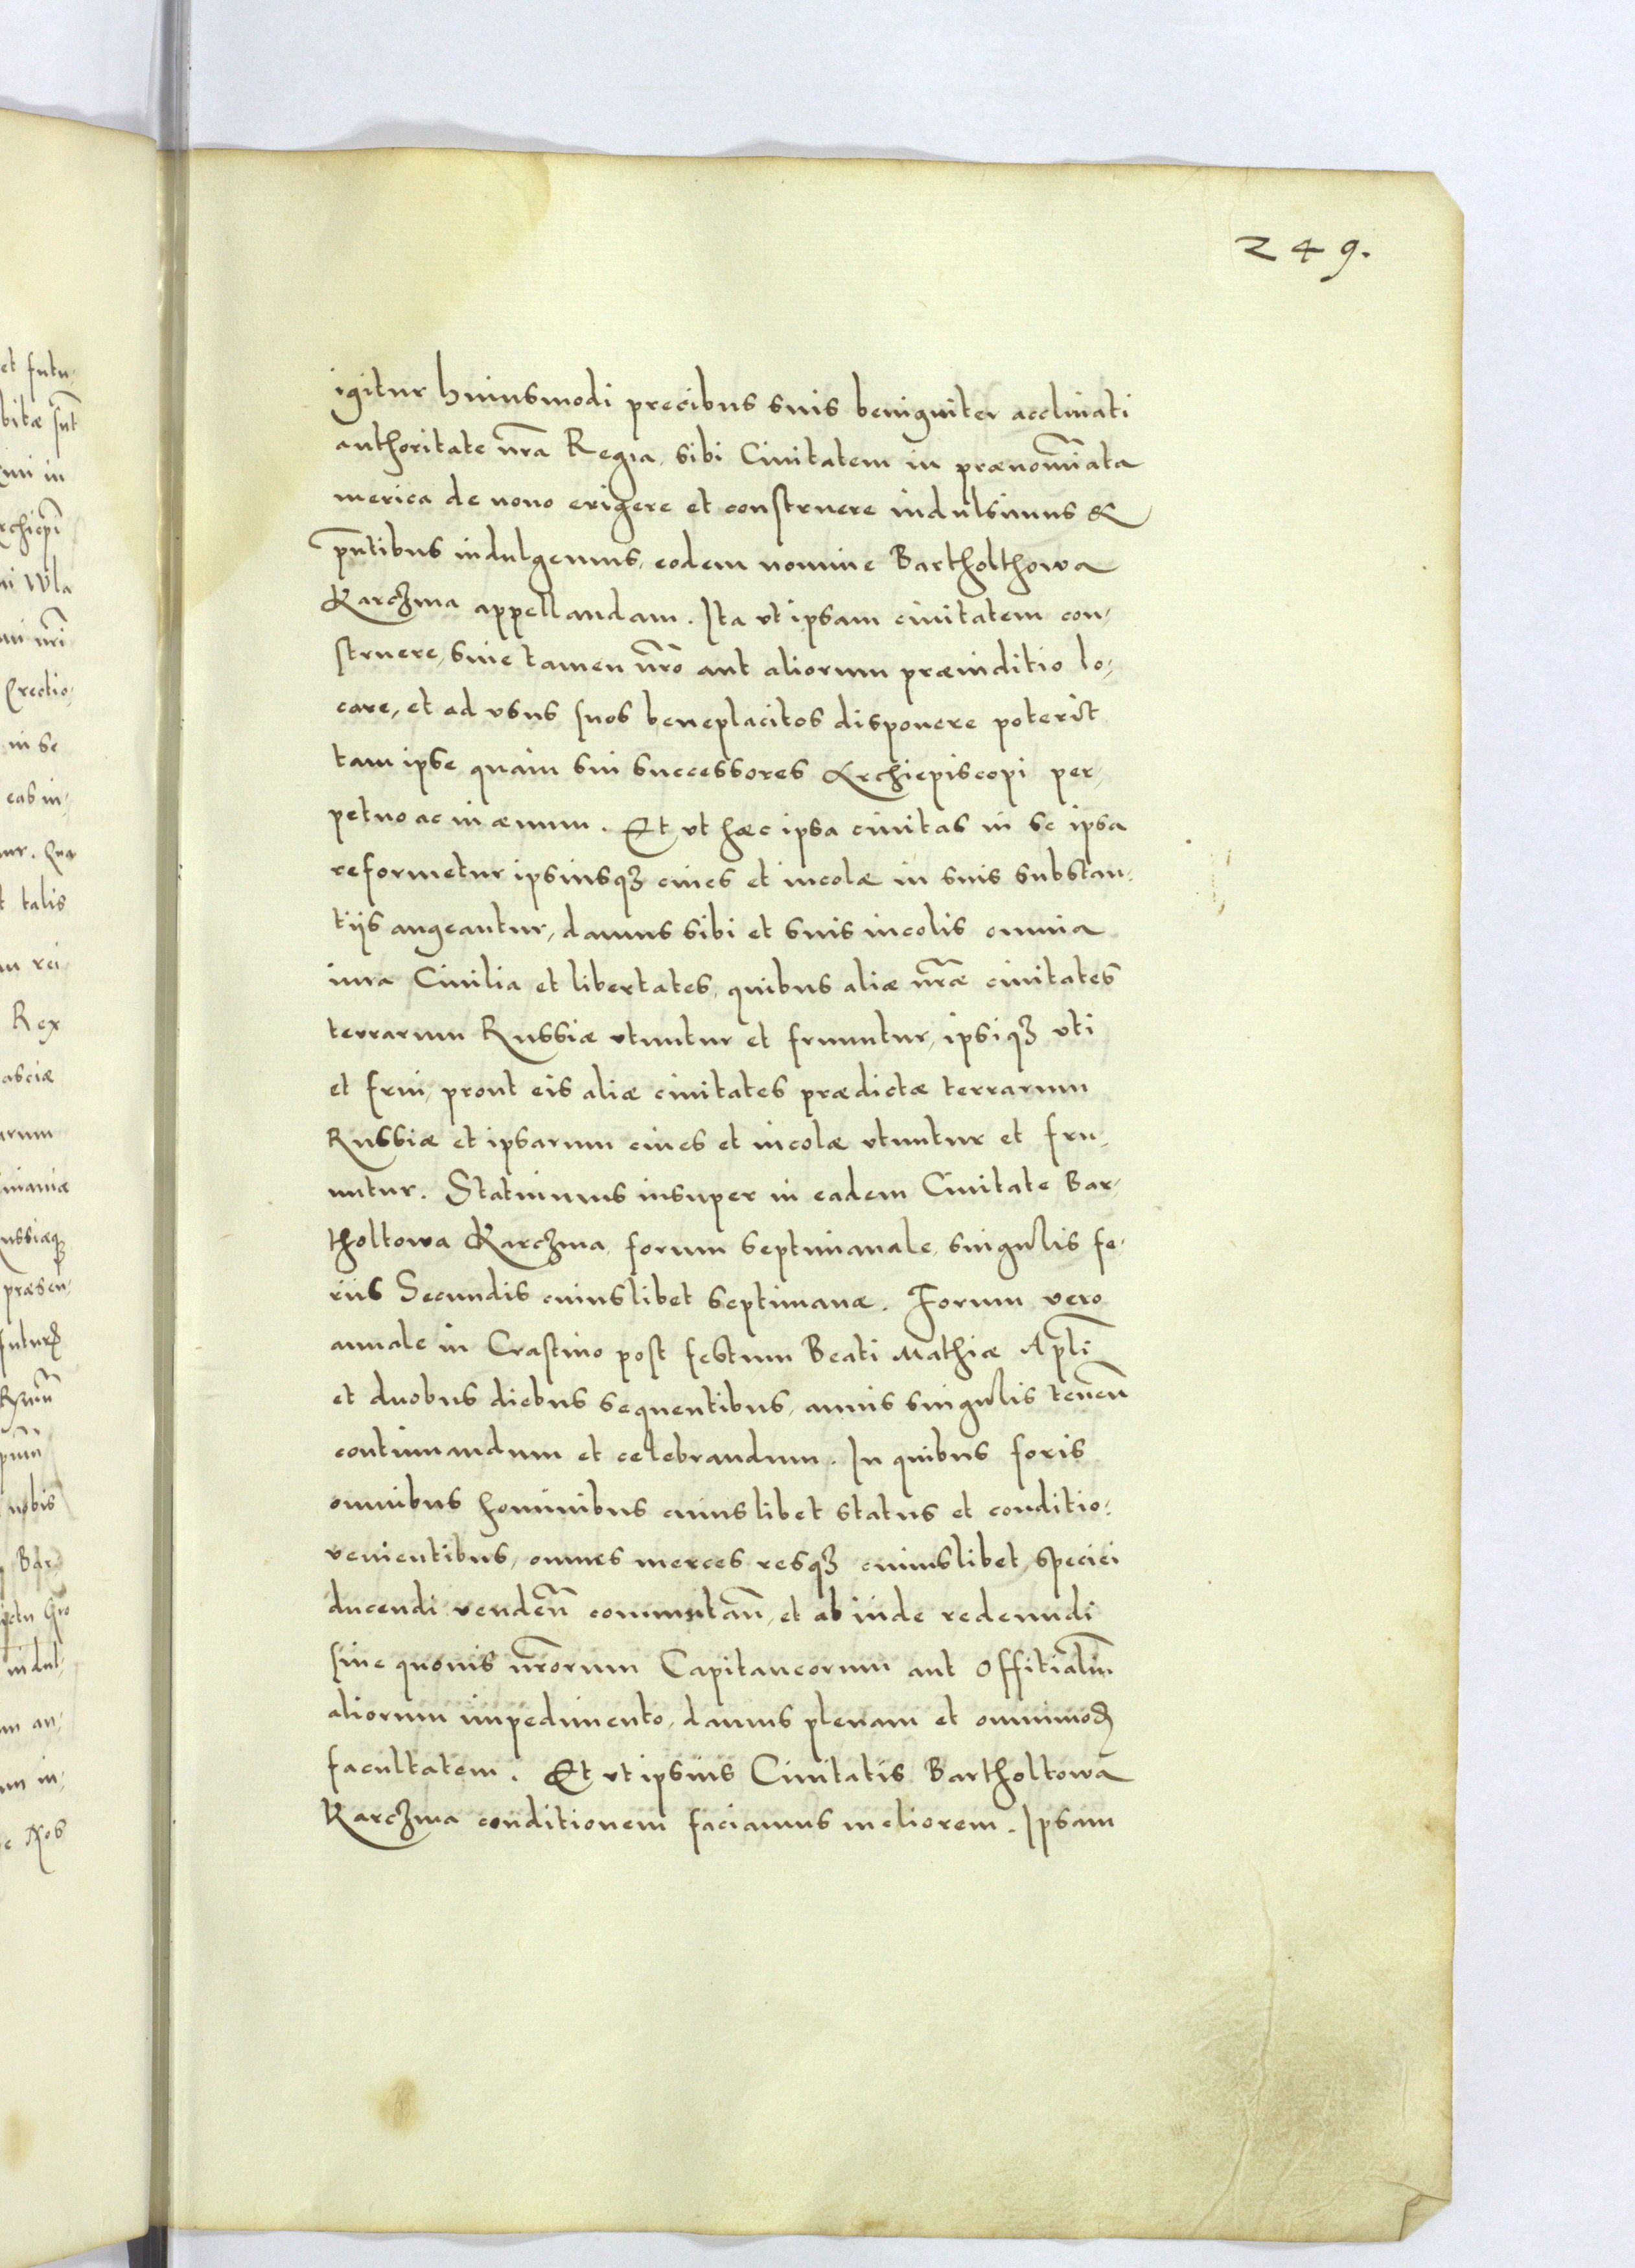 249.
igitur huiusmodi precibus suis benigniter acclinati
authoritate nr̃a Regia, sibi Ciuitatem in prænomi͠ata
merica de nouo erigere et construere indulsimus &
pñtibus indulgemus, eodem nomine Bartholthowa
Karczma appellandam. Ita vt ipsam ciuitatem con-
struere, sine tamen nr̃o aut aliorum præiuditio lo-
care, et ad vsus suos beneplacitos disponere poterit
tam ipse quàm sui successores Archiepiscopi per-
petuo ac in æuum. Et vt hæc ipsa ciuitas in se ipsa
reformetur ipsiusqꝫ ciues et incolæ in suis substan-
tijs augeantur, damus sibi et suis incolis omnia
iura Ciuilia et libertates, quibus aliæ nr̃æ ciuitates
terrarum Russiæ vtuntur et fruuntur, ipsiqꝫ vti
et frui, prout eis aliæ ciuitates prædictæ terrarum
Russiæ et ipsarum ciues et incolæ vtuntur et fru-
untur. Statuimus insuper in eadem Ciuitate Bar-
tholtowa Karczma, forum septimanale, singulis fe-
riis Secundis cuiuslibet septimanæ. Forum vero
annale in Crastino post festum Beati Mathiæ Apl̃i
et duobus diebus sequentibus, annis singulis teneñ
continuandum et celebrandum. In quibus foris
omnibus hominibus cuiuslibet status et conditio:
venientibus, omnes merces resqꝫ cuiuslibet speciei
ducendi vendeñ commutañ, et ab inde redeundi
sine quouis nr̃orum Capitaneorum aut Offitialiũm
aliorum impedimento, damus plenam et omnimoꝺ
facultatem. Et vt ipsius Ciuitatis Bartholtowa
Karczma conditionem faciamus meliorem. Ipsam